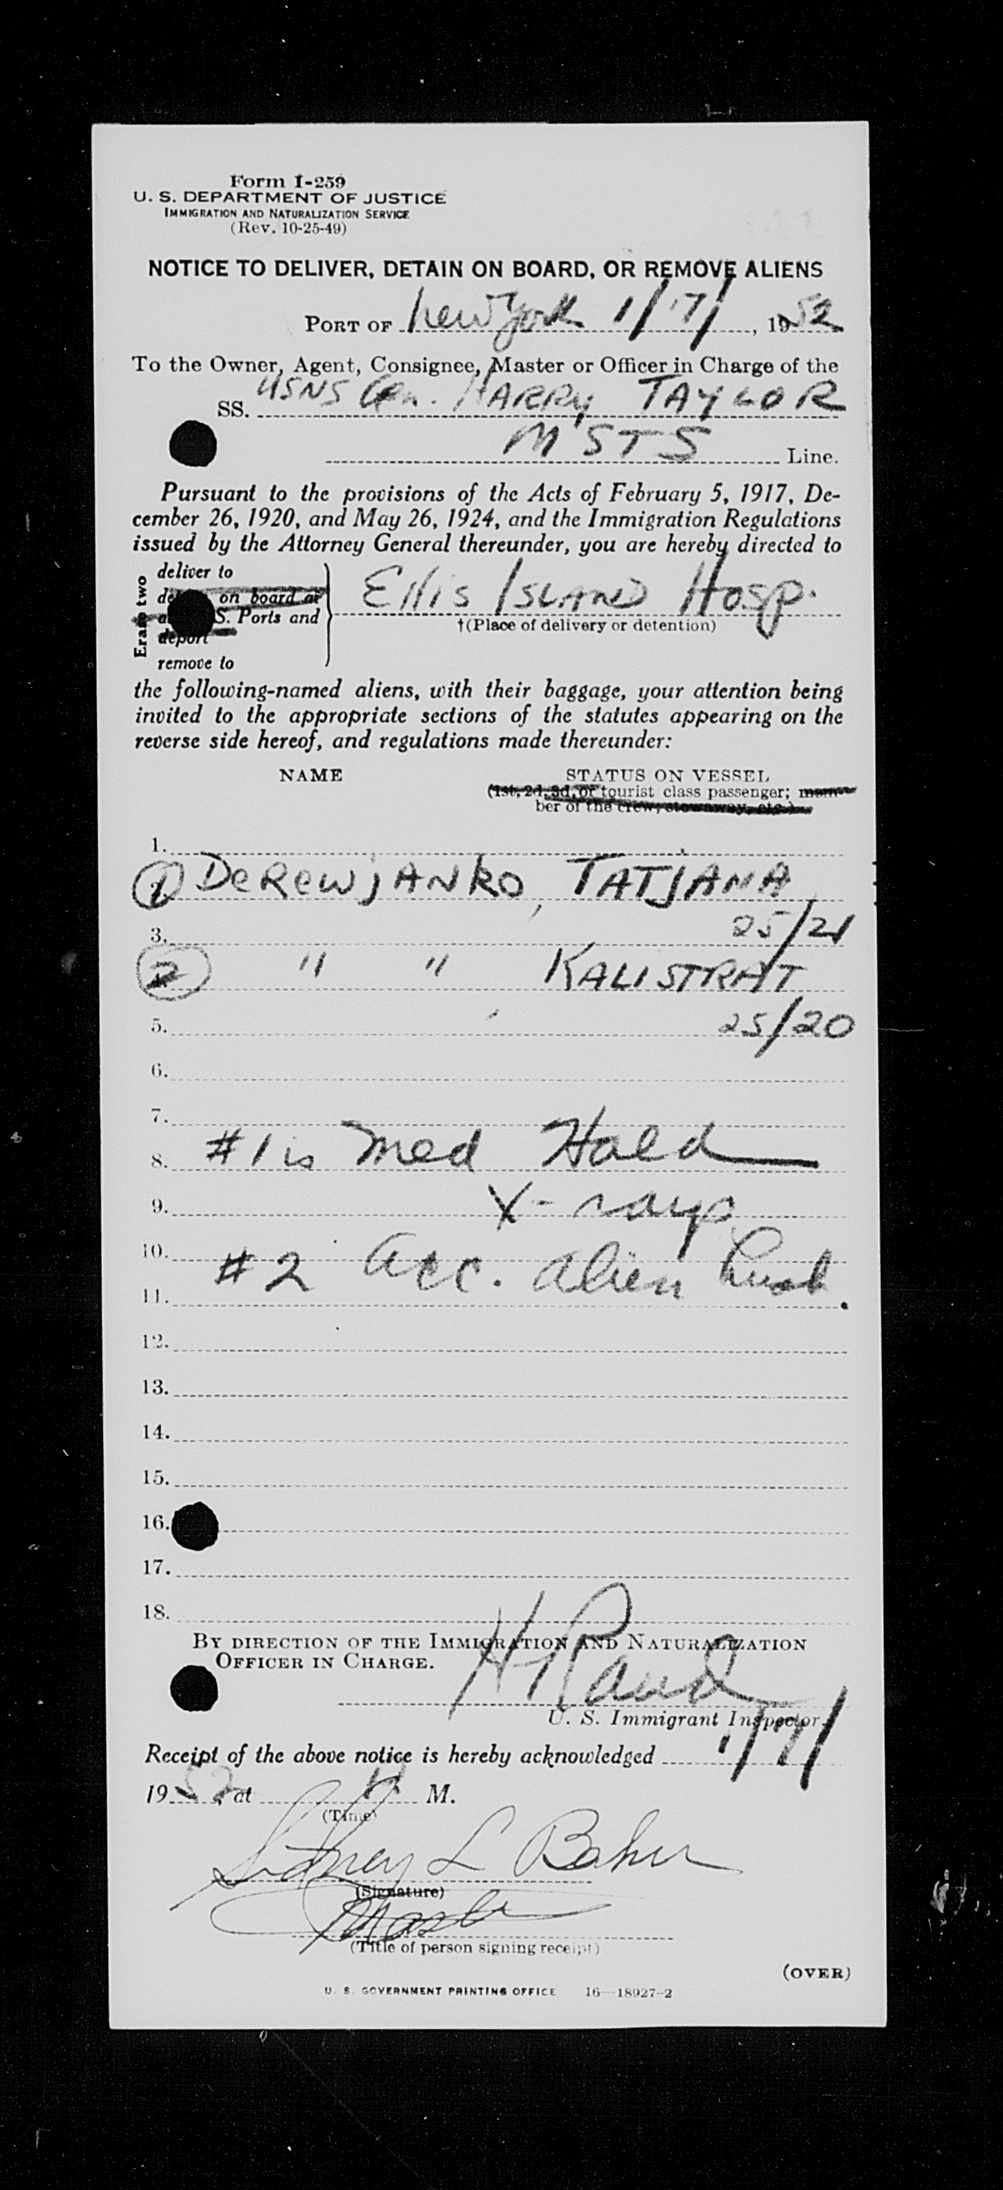 Form I-259
U. S. DEPARTMENT OF JUSTICE
IMMIGRATION AND NATURALIZATION SERVICE
(Rev. 10-25-49)
NOTICE TO DELIVER, DETAIN ON BOARD, OR REMOVE ALIENS
PORT OF New York 1/17/, 1952
To the Owner, Agent, Consignee, Master or Officer in Charge of the
SS. USNS Gen. HARRY TAYLOR
MSTS Line.
Pursuant to the provisions of the Acts of February 5, 1917, De-
cember 26, 1920, and May 26, 1924, and the Immigration Regulations
issued by the Attorney General thereunder, you are hereby directed to
Erase two
deliver to
on board at
S. Ports and
deport
remove to
Ellis ISLAND Hosp.
†(Place of delivery or detention)
the following-named aliens, with their baggage, your attention being
invited to the appropriate sections of the statutes appearing on the
reverse side hereof, and regulations made thereunder:
NAME STATUS ON VESSEL
(1st, 2d, 3d, or tourist class passenger; mem-
ber of the crew, stowaway, etc.)
1.
1 DeRewjANKO, TATJANA
3. 25/21
2 " " KALISTRAT
5. 25/20
6.
7.
8. #1 is Med Hold
9. X-rays
10.
#2 Acc. alien husb.
11.
12.
13.
14.
15.
16.
17.
18.
BY DIRECTION OF THE IMMIGRATION AND NATURALIZATION
OFFICER IN CHARGE.
U. S. Immigrant Inspector.
Receipt of the above notice is hereby acknowledged 1/17/
1952 at M.
(Time)
Sidney L Baker
(Signature)
Master
(Title of person signing receipt)
(OVER)
U. S. GOVERNMENT PRINTING OFFICE 16—18927-2